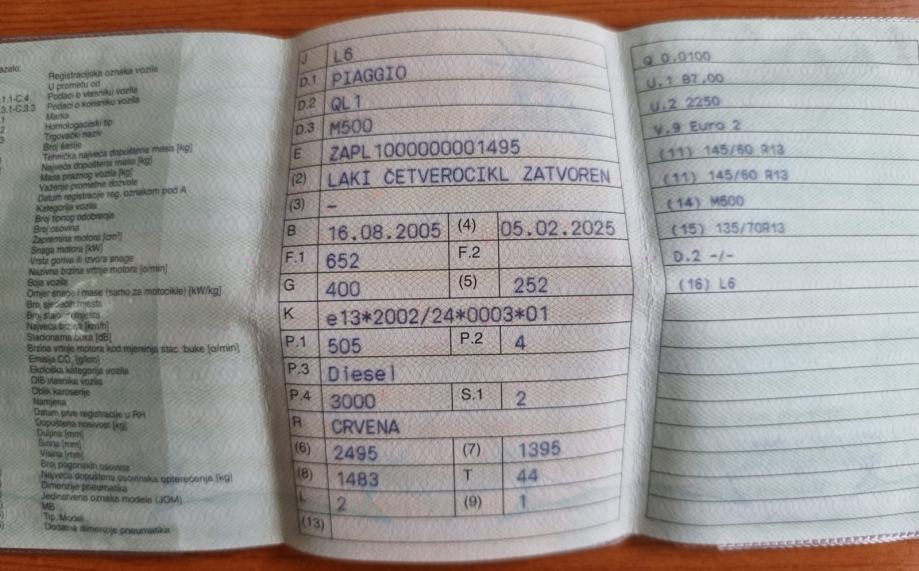 azalo:
Registracijska oznaka vozila
U prometu od
.1.1-C.4 Podaci o vlasniku vozila
.3.1-C.3.3 Podaci o korisniku vozila
.1 Marka
2 Homologacijski tip
3 Trgovački naziv
Broj šasije
Tehnička najveća dopuštena masa [kg]
Najveća dopuštena masa [kg]
Masa praznog vozila [kg]
Važenje prometne dozvole
Datum registracije reg. oznakom pod A
Kategorija vozila
Broj tipnog odobrenja
Broj osovina
Zapremina motora [cm³]
Snaga motora [kW]
Vrsta goriva ili izvora snage
Nazivna brzina vrtnje motora [o/min]
Boja vozila
Omjer snage i mase (samo za motocikle) [kW/kg]
Broj sjedećih mjesta
Broj stajaćih mjesta
Najveća brzina [km/h]
Stacionarna buka [dB]
Brzina vrtnje motora kod mjerenja stac. buke [o/min]
Emisija CO₂ [g/km]
Ekološka kategorija vozila
OIB vlasnika vozila
Oblik karoserije
Namjena
Datum prve registracije u RH
Dopuštena nosivost [kg]
Duljina [mm]
Širina [mm]
Visina [mm]
Broj pogonskih osovina
Najveća dopuštena osovinska opterećenja [kg]
Dimenzije pneumatika
Jedinstvena oznaka modela (JOM)
MB
Tip, Model
Dodatna dimenzije pneumatika
J L6
D.1 PIAGGIO
D.2 QL1
D.3 M500
E ZAPL1000000001495
(2) LAKI ČETVEROCIKL ZATVOREN
(3) –
B 16.08.2005 (4) 05.02.2025
F.1 652 F.2
G 400 (5) 252
K e13*2002/24*0003*01
P.1 505 P.2 4
P.3 Diesel
P.4 3000 S.1 2
R CRVENA
(6) 2495 (7) 1395
(8) 1483 T 44
L 2 (9) 1
(13)
Q 0.0100
U.1 87,00
U.2 2250
V.9 Euro 2
(11) 145/60 R13
(11) 145/60 R13
(14) M500
(15) 135/70R13
D.2 -/-
(16) L6